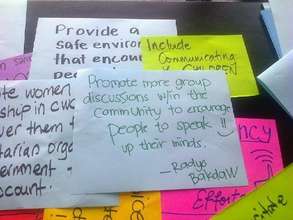 Provide a
safe environ
that encou
pe
Include
Communicating
CHILDREN
ate women
ship in cwc
ver them t
itarian orga
ernment
ccount.
Promote more group
discussions w/in the
community to encourage
people to speak
up their minds.
— Radyo
Bakdaw
NCY
Efforts